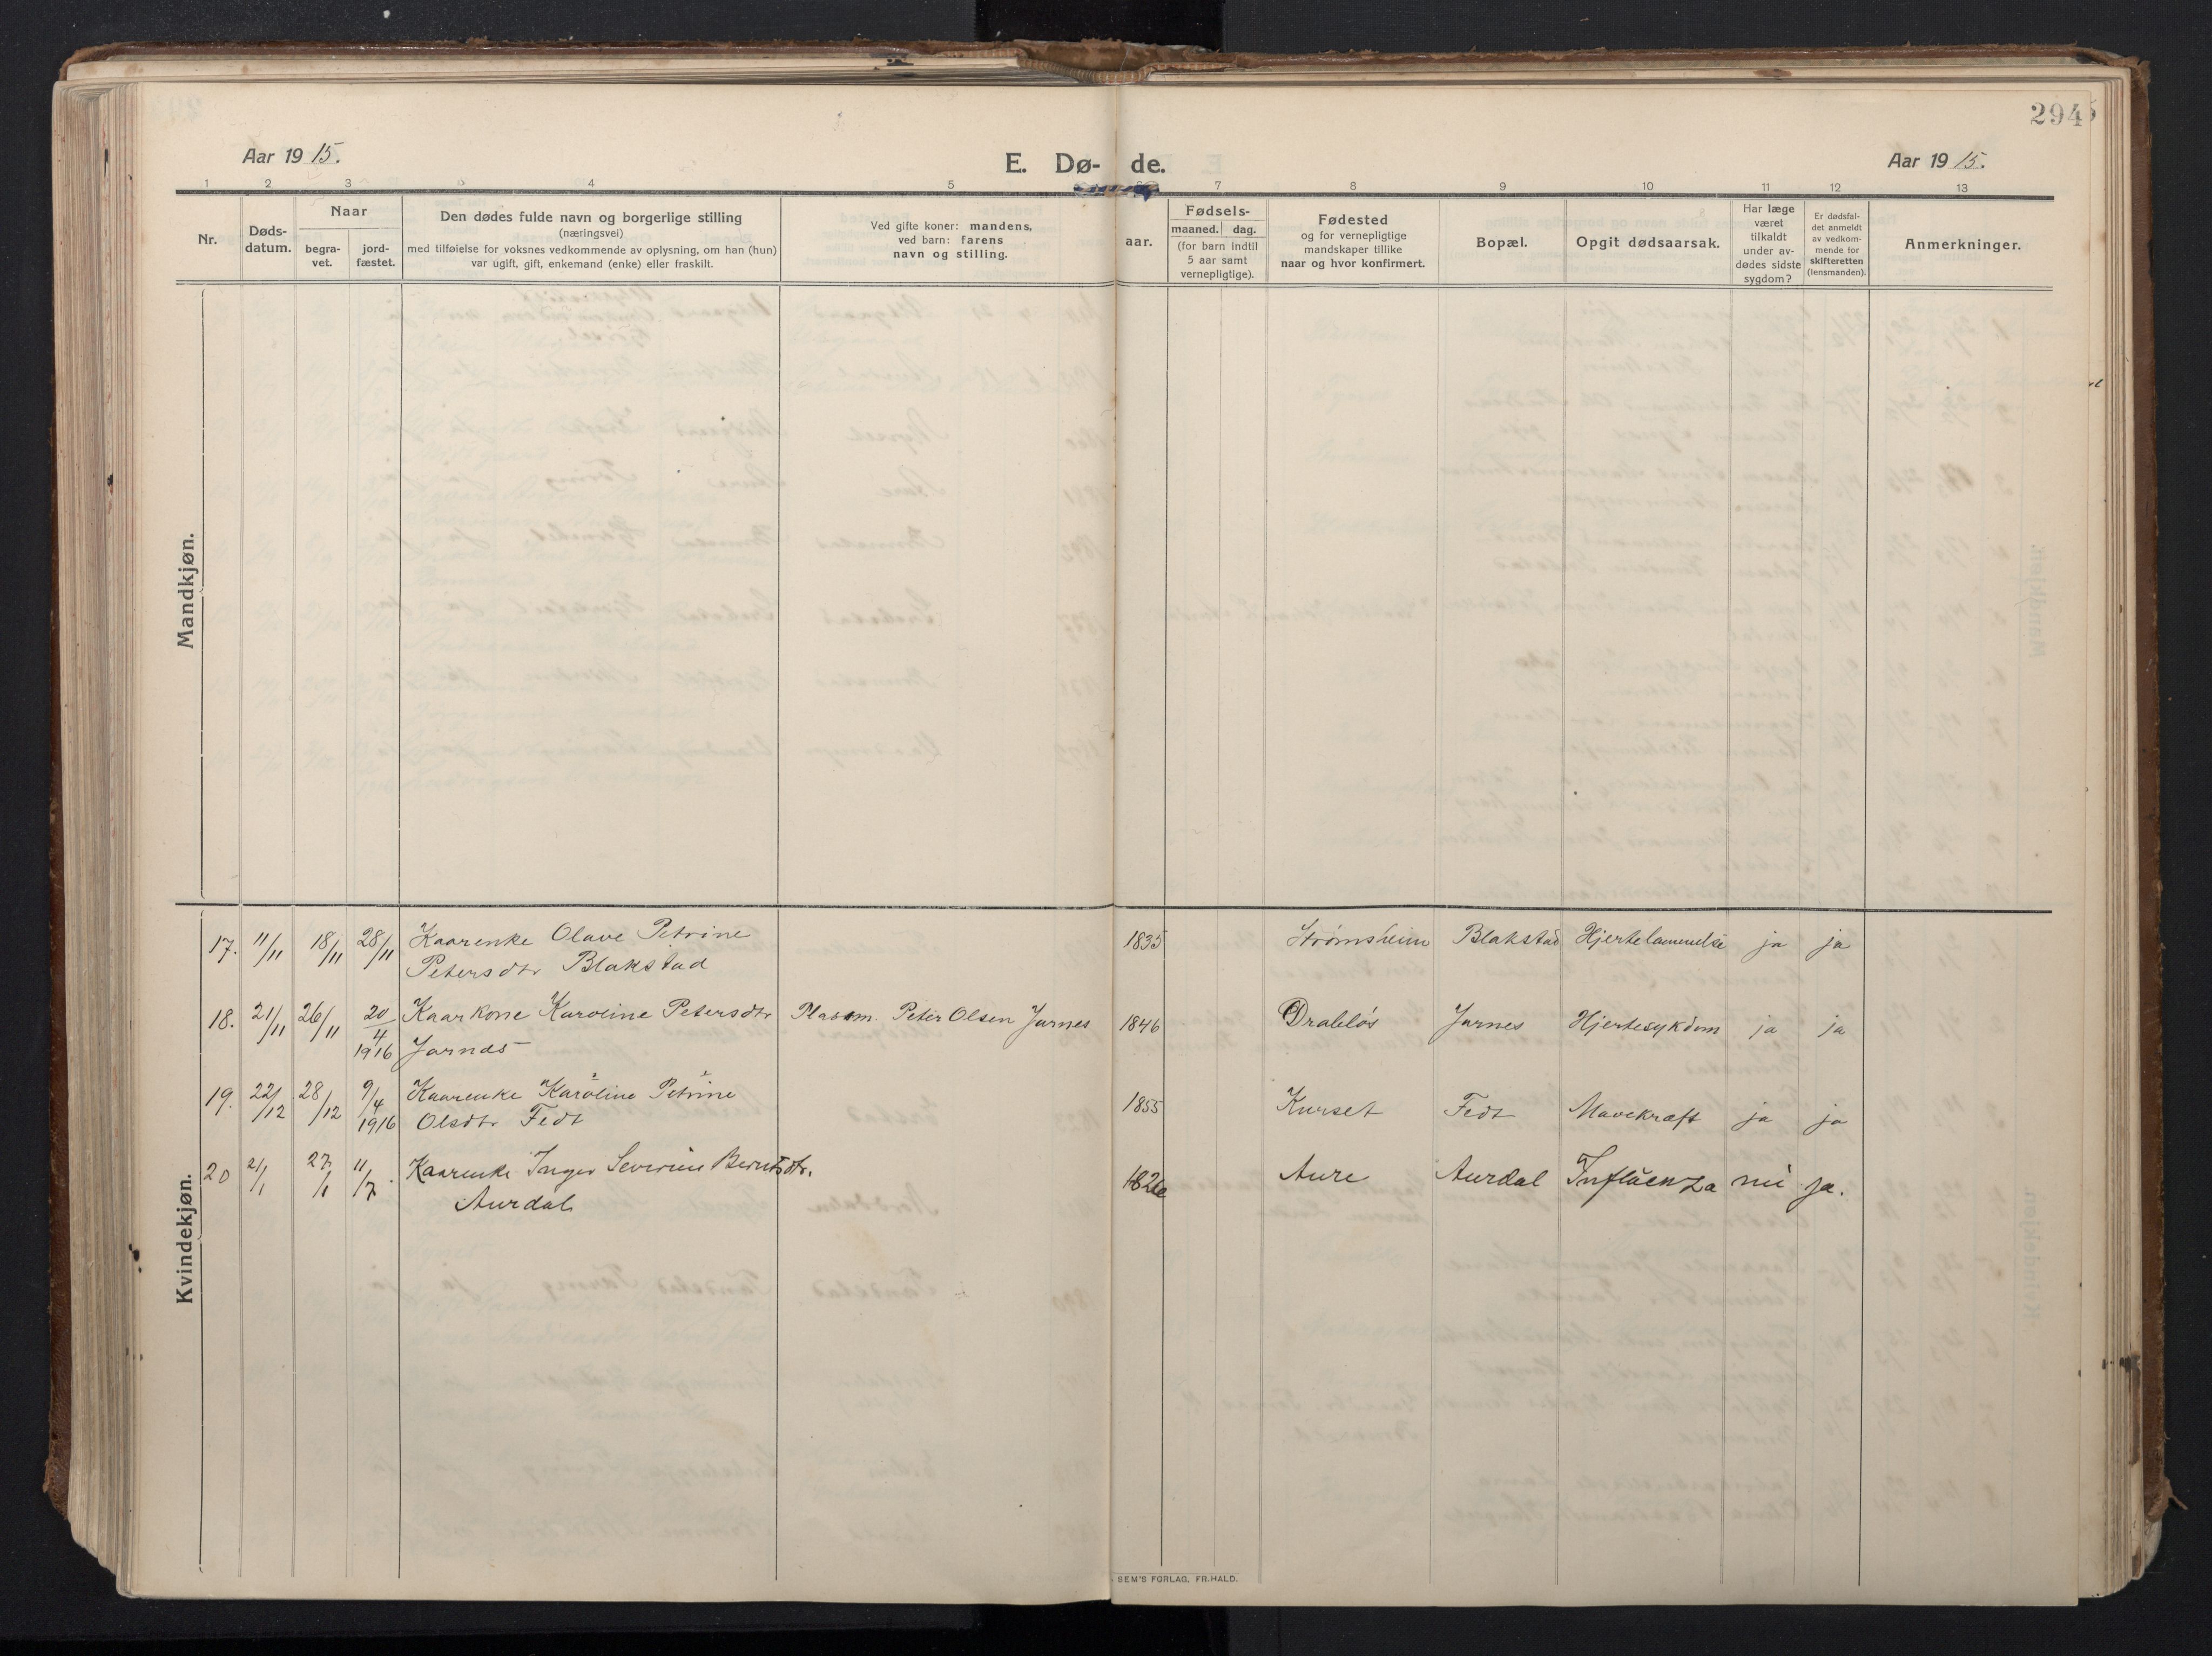 294
Aar 19 15.
E. Dø- de.
Aar 19 15.
1 2 3 4 5 7 8 9 10 11 12 13
Nr.
Døds-
datum.
Naar
begra-
vet.
jord-
fæstet.
Den dødes fulde navn og borgerlige stilling
(næringsvei)
med tilføielse for voksnes vedkommende av oplysning, om han (hun)
var ugift, gift, enkemand (enke) eller fraskilt.
Ved gifte koner: mandens,
ved barn: farens
navn og stilling.
aar.
Fødsels-
maaned. dag.
(for barn indtil
5 aar samt
vernepligtige).
Fødested
og for vernepligtige
mandskaper tillike
naar og hvor konfirmert.
Bopæl.
Opgit dødsaarsak.
Har læge
været
tilkaldt
under av-
dødes sidste
sygdom?
Er dødsfal-
det anmeldt
av vedkom-
mende for
skifteretten
(lensmanden).
Anmerkninger.
Mandkjøn.
17. 11/11 18/11 28/11 Kaarenke Olave Petrine 1835 Strømsheim Blakstad Hjertelammelse ja ja
Petersdtr Blakstad
18. 21/11 26/11 20/4 Kaarkone Karoline Petersdtr Plassm. Peter Olsen Jarnes 1846 Drabløs Jarnes Hjertesykdom ja ja
1916 Jarnes
19. 22/12 28/12 9/4 Kaarenke Karoline Petrine 1855 Kurset Fedt Mavekræft ja ja
1916 Olsdtr Fedt
20 21/1 27/1 11/7 Kaarenke Inger Severine Berntsdtr. 1826 Aure Aurdal Influenza nei ja.
Aurdal
Kvindekjøn.
SEM'S FORLAG, FR.HALD.